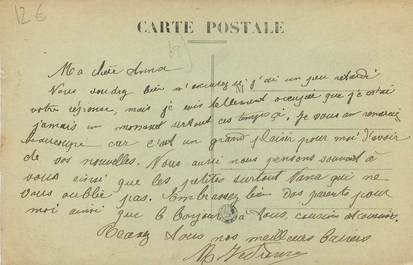 12 €
CARTE POSTALE
Ma chère Anna
Vous voudrez bien m'excusez si j'ai un peu retardé
votre réponse, mais je suis tellement occupée que je n'ai
jamais un moment surtout ces temps-ci. Je vous en remercie
beaucoup car c'est un grand plaisir pour moi d'avoir
de vos nouvelles. Nous aussi nous pensons souvent à
vous ainsi que les petites surtout qui ne
vous oublie pas. Embrassez bien vos parents pour
moi ainsi que le bonjour à tous, cousins et cousines.
Recevez tous nos meilleurs baisers
M